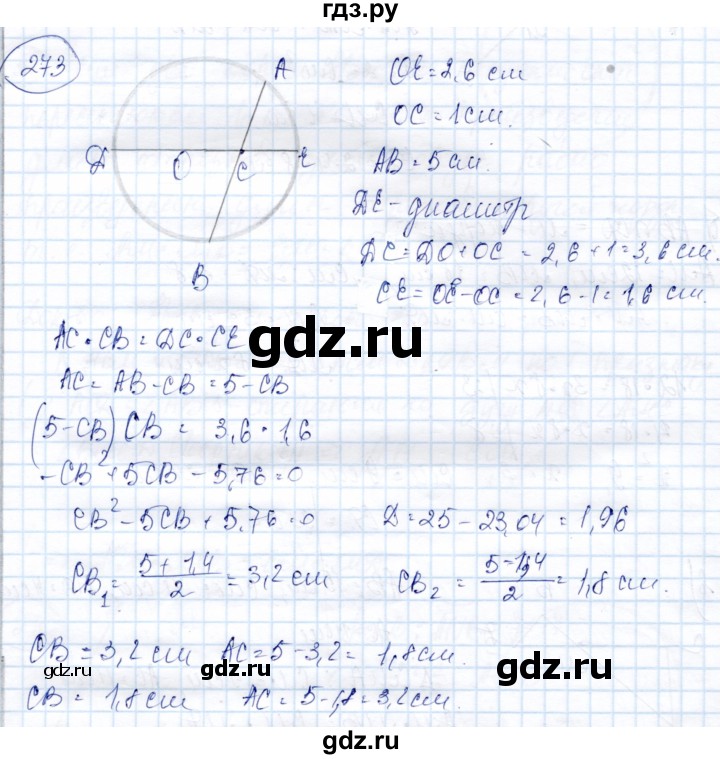 гдз.ру
273
A
Д O C E
B
OE = 2,6 см
OC = 1 см.
AB = 5 см.
ДE - диаметр
ДC = ДO + OC = 2,6 + 1 = 3,6 см.
CE = OE - OC = 2,6 - 1 = 1,6 см.
AC · CB = ДC · CE
gdz.ru
AC = AB - CB = 5 - CB
(5 - CB) CB = 3,6 · 1,6
- CB² + 5CB - 5,76 = 0
CB² - 5CB + 5,76 = 0 Д = 25 - 23,04 = 1,96
CB₁ = (5 + 1,4)/2 = 3,2 см CB₂ = (5 - 1,4)/2 = 1,8 см.
CB = 3,2 см AC = 5 - 3,2 = 1,8 см.
gdz.ru gdz.ru
CB = 1,8 см AC = 5 - 1,8 = 3,2 см.
gdz.ru